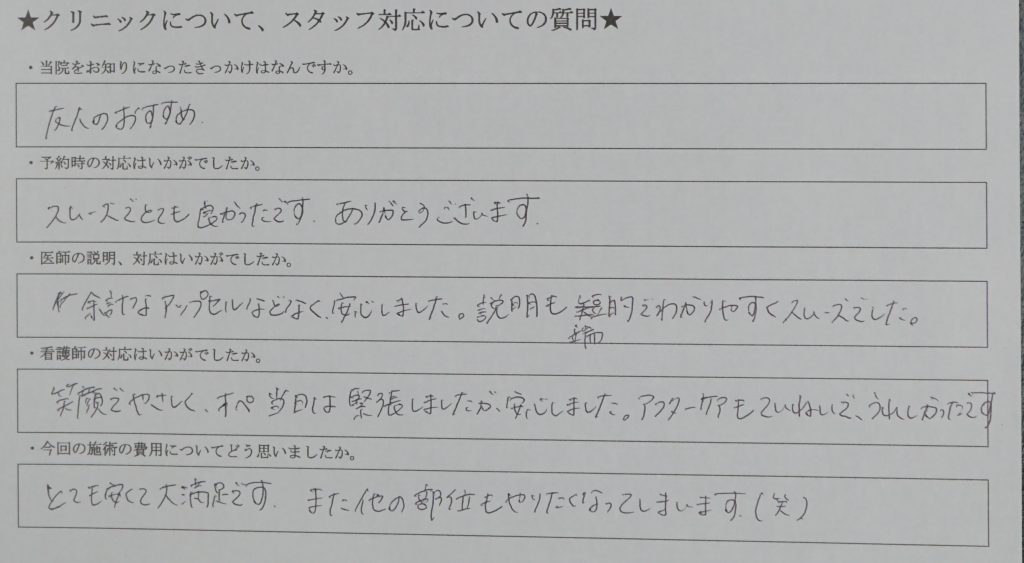 ★クリニックについて、スタッフ対応についての質問★
・当院をお知りになったきっかけはなんですか。
友人のおすすめ.
・予約時の対応はいかがでしたか。
スムーズでとても良かったです. ありがとうございます.
・医師の説明、対応はいかがでしたか。
余計なアップセルなどなく、安心しました。説明も端的でわかりやすくスムーズでした。
・看護師の対応はいかがでしたか。
笑顔でやさしく、オペ当日は緊張しましたが、安心しました。アフターケアもていねいで、うれしかったです
・今回の施術の費用についてどう思いましたか。
とても安くて大満足です. また他の部位もやりたくなってしまいます.(笑)